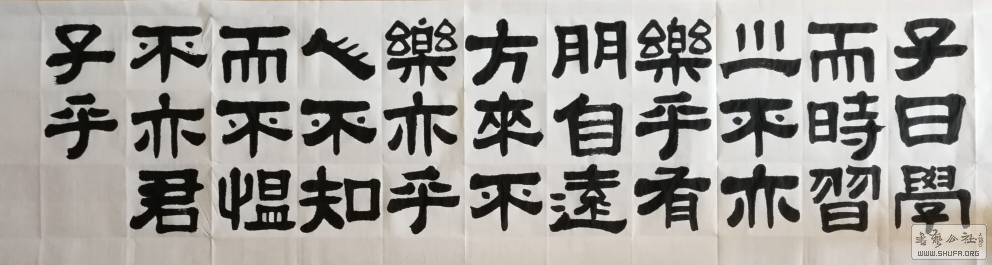 子曰學
而時習
之不亦
樂乎有
朋自遠
方來不
樂亦乎
人不知
而不愠
不亦君
子乎
WWW.SHUFA.ORG